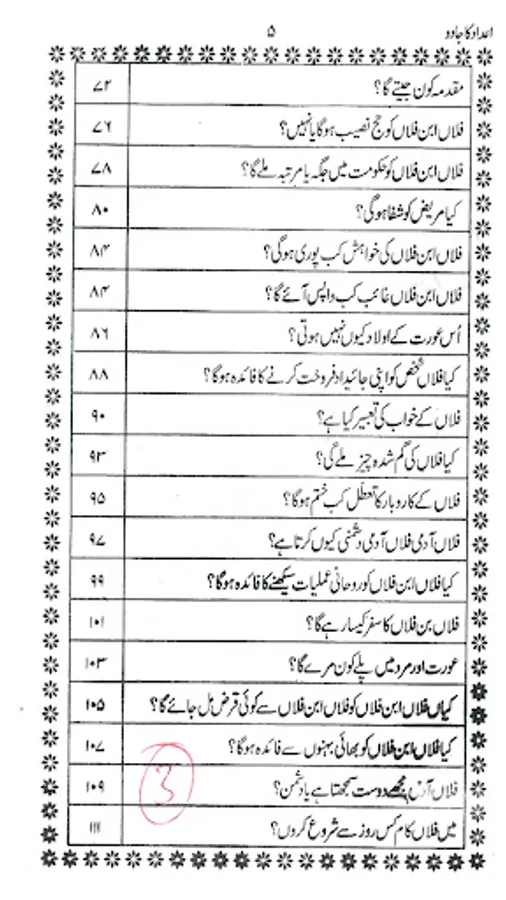 اعداد کا جادو
۵
مقدمہ کون جیتے گا؟ ۷۲
فلاں ابن فلاں کو حج نصیب ہوگا یا نہیں؟ ۷۶
فلاں ابن فلاں کو حکومت میں جگہ یا مرتبہ ملے گا؟ ۷۸
کیا مریض کو شفا ہوگی؟ ۸۰
فلاں ابن فلاں کی خواہش کب پوری ہوگی؟ ۸۲
فلاں ابن فلاں غائب کب واپس آئے گا؟ ۸۴
اُس عورت کے اولاد کیوں نہیں ہوتی؟ ۸۶
کیا فلاں شخص کو اپنی جائیداد فروخت کرنے کا فائدہ ہوگا؟ ۸۸
فلاں کے خواب کی تعبیر کیا ہے؟ ۹۰
کیا فلاں کی گم شدہ چیز ملے گی؟ ۹۳
فلاں کے کاروبار کا تعطل کب ختم ہوگا؟ ۹۵
فلاں آدمی فلاں آدمی دشمنی کیوں کرتا ہے؟ ۹۷
کیا فلاں ابن فلاں کو روحانی عملیات سیکھنے کا فائدہ ہوگا؟ ۹۹
فلاں بن فلاں کا سفر کیسا رہے گا؟ ۱۰۱
عورت اور مرد میں پلے کون مرے گا؟ ۱۰۳
کیاں فلاں ابن فلاں کو فلاں ابن فلاں سے کوئی قرض مل جائے گا؟ ۱۰۵
کیا فلاں ابن فلاں کو بھائی بہنوں سے فائدہ ہوگا؟ ۱۰۷
فلاں مجھے دوست سمجھتا ہے یا دشمن؟ ۱۰۹
میں فلاں کام کس روز سے شروع کروں؟ ۱۱۱
3